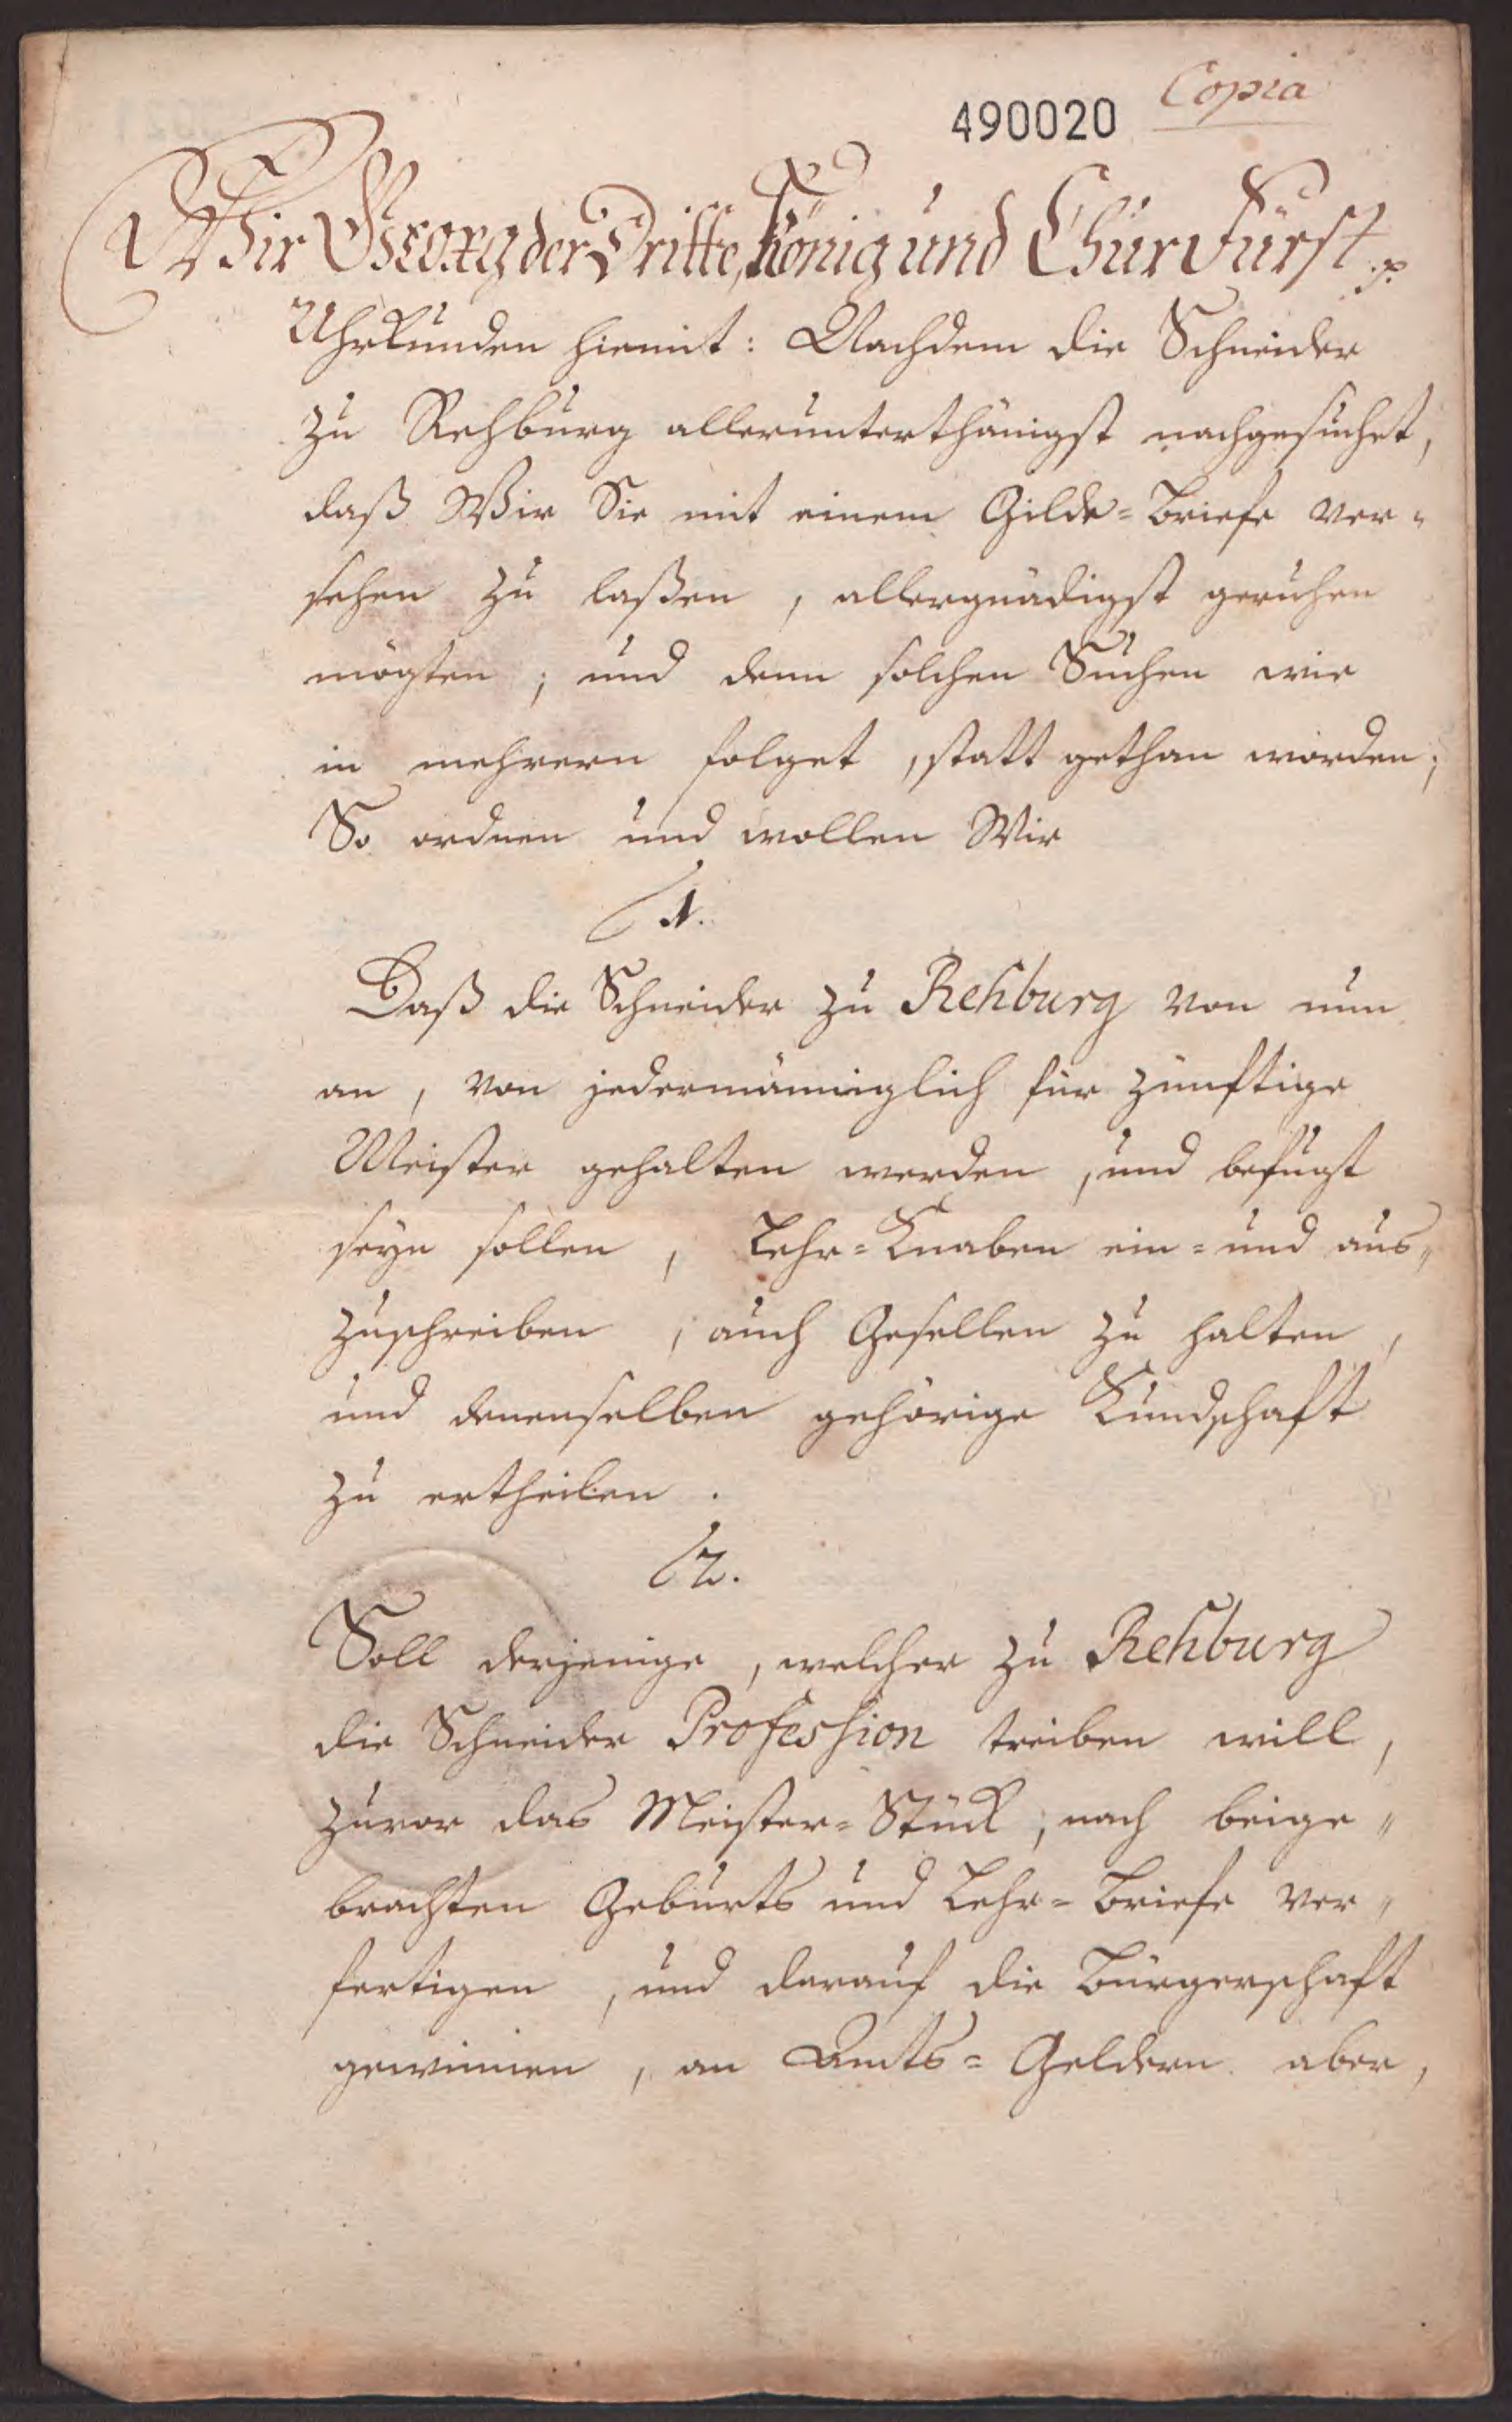 Copia
490020
Wir Georg der Dritte, König und Churfürst p.
Uhrkunden hiemit: Nachdem die Schneider
zu Rehburg allerunterthänigst nachgesuchet,
daß Wir Sie mit einem Gilde-Briefe ver-
sehen zu laßen, allergnädigst geruhen
mögten; und denn solchen Suchen wie
in mehrern folget, statt gethan worden;
So ordnen und wollen Wir
1.
Daß die Schneider zu Rehburg von nun
an, von jedermänniglich für zünftige
Meister gehalten werden, und befugt
seyn sollen, Lehr-Knaben ein- und aus-
zuschreiben, auch Gesellen zu halten,
und denenselben gehörige Kundschaft
zu ertheilen.
2.
Soll derjenige, welcher zu Rehburg
die Schneider Profession treiben will,
zuvor das Meister-Stück, nach beige-
brachten Geburts und Lehr-Briefe ver-
fertigen, und darauf die Bürgerschaft
gewinnen, an Amts-Geldern aber,